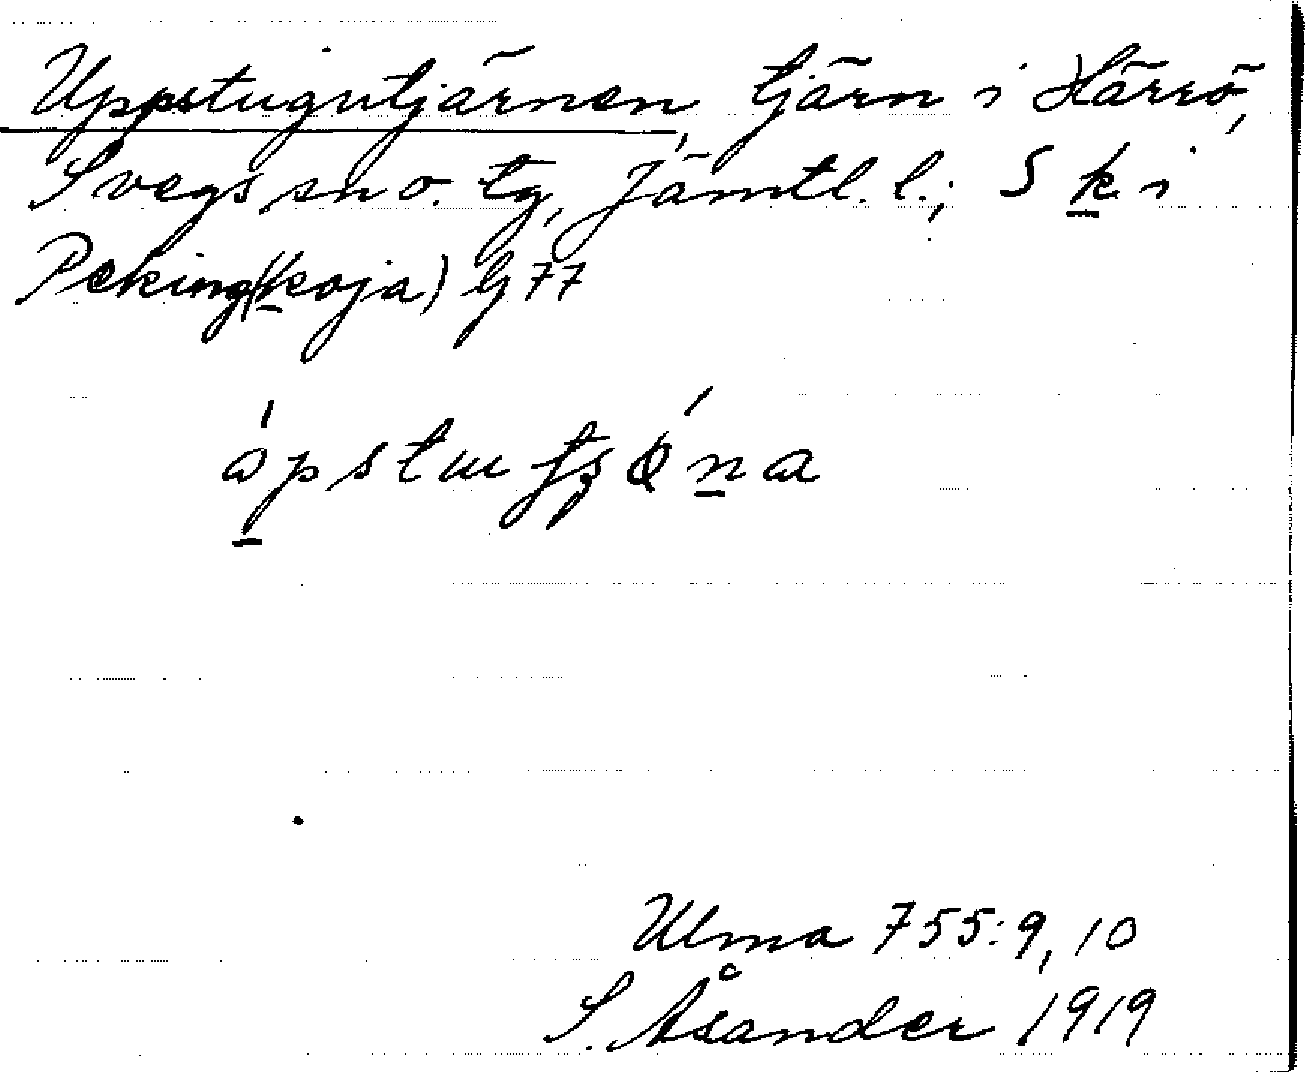 Uppstugutjärnen, tjärn i Härrö,
Svegs sn o. tg, Jämtl. l.; S k i
Peking(koja) G 77
Ulma 755: 9, 10
S. Åsander 1919